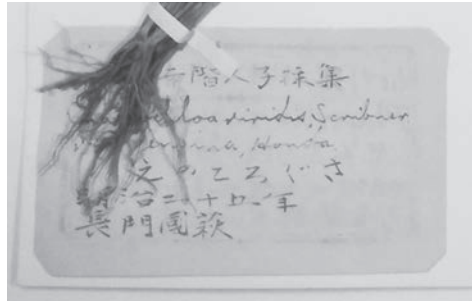 二階人子採集
viridis, Scribner
Honda
えのころぐさ
明治二十五年
長門國萩